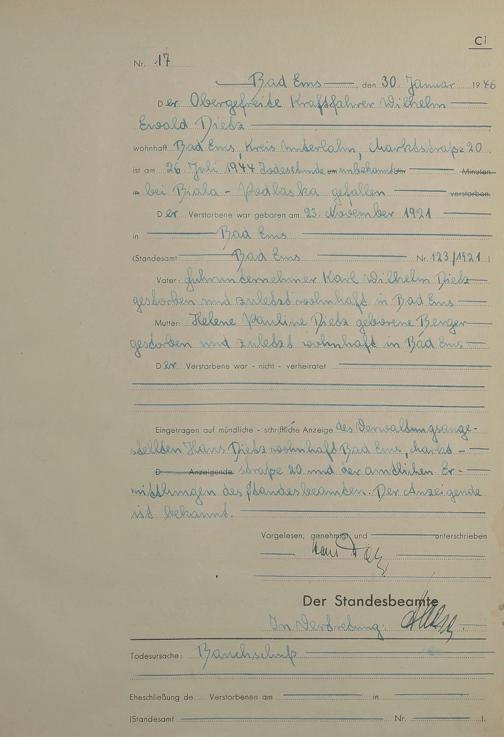 C1
Nr. 17
Bad Ems, den 30. Januar 1946
Der Obergefreite Kraftfahrer Wilhelm
Ewald Dietz
wohnhaft Bad Ems, Kreis Unterlahn, Marktstraße 20
ist am 26. Juli 1944 Todesstunde um unbekannt Uhr Minuten
in bei Biala - Podlaska gefallen verstorben.
Der Verstorbene war geboren am 23. November 1921
in Bad Ems
(Standesamt Bad Ems Nr. 123/1921)
Vater: Fuhrunternehmer Karl Wilhelm Dietz
gestorben und zuletzt wohnhaft in Bad Ems
Mutter: Helene Pauline Dietz geborene Berger
gestorben und zuletzt wohnhaft in Bad Ems
Der Verstorbene war - nicht - verheiratet
Eingetragen auf mündliche - schriftliche Anzeige des Verwaltungsange-
stellten Hans Dietz wohnhaft Bad Ems, Markt-
D Anzeigende straße 20 und der amtlichen Er-
mittlungen des Standesbeamten. Der Anzeigende
ist bekannt.
Vorgelesen, genehmigt und unterschrieben
Der Standesbeamte
In Vertretung:
Todesursache: Bauchschuß
Eheschließung de Verstorbenen am in
(Standesamt Nr. ).